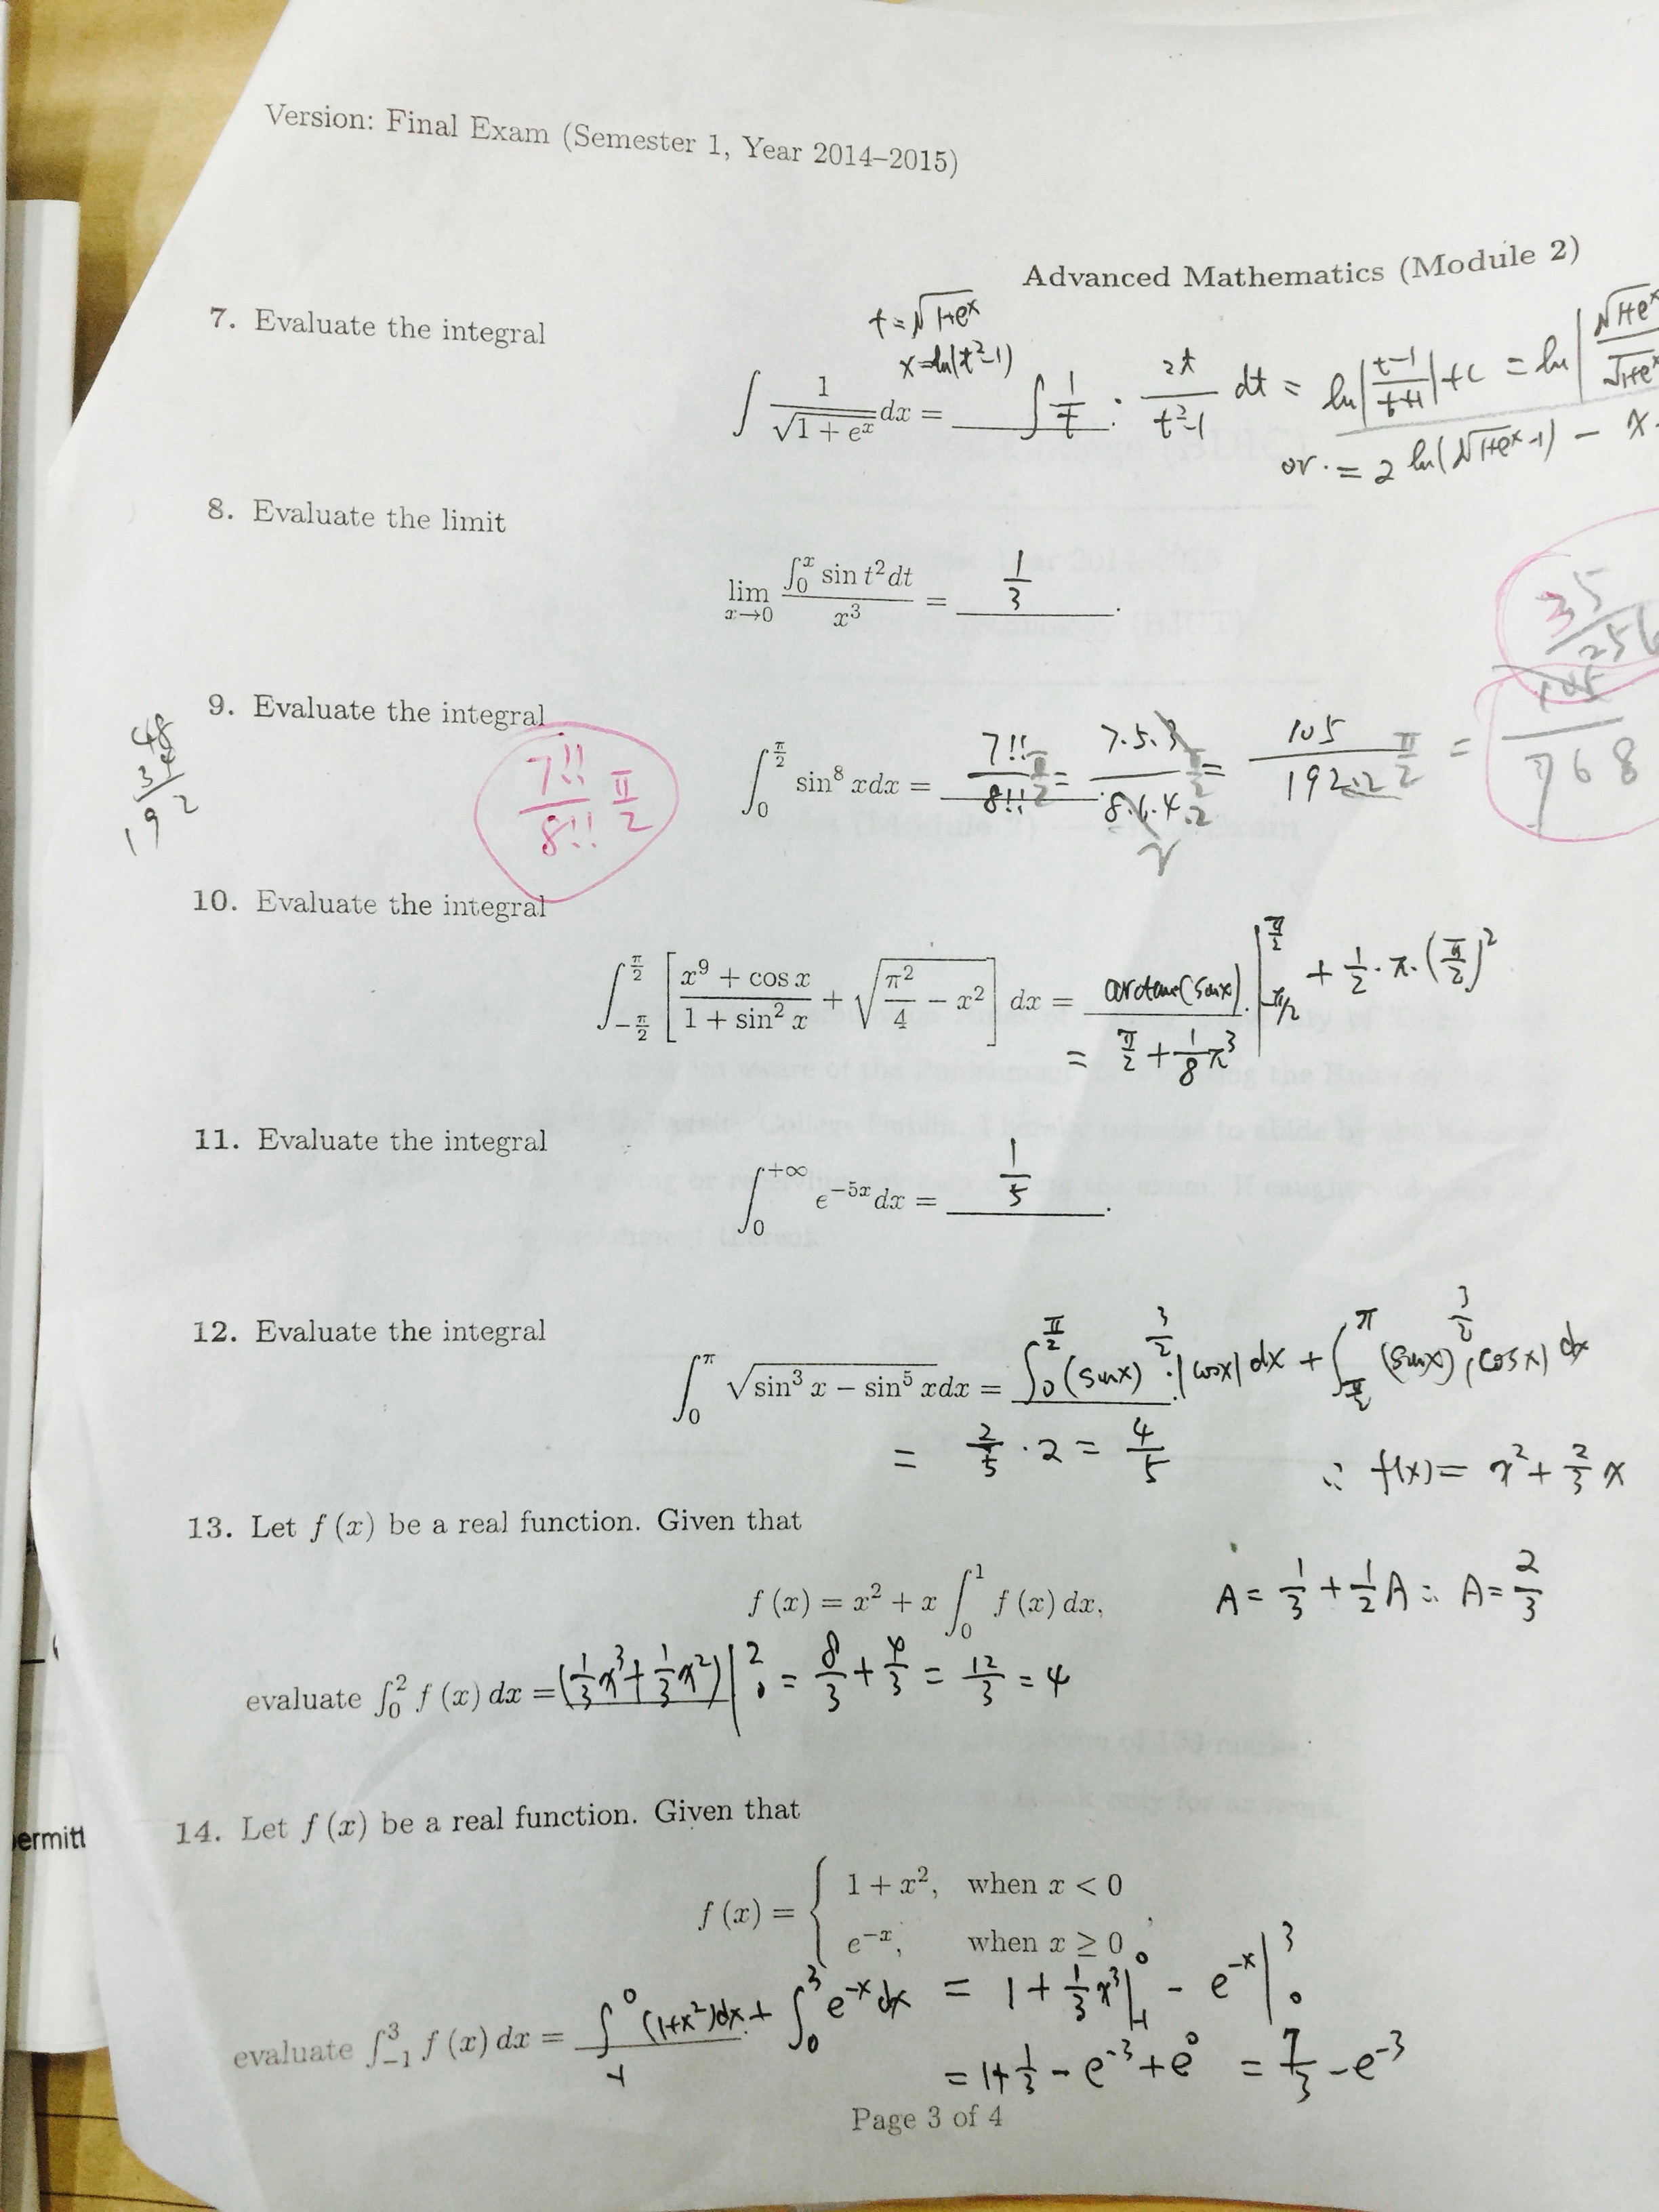 Version: Final Exam (Semester 1, Year 2014–2015)
Advanced Mathematics (Module 2)
7. Evaluate the integral
t = √(1+e^x)
x = ln(t²-1)
∫ 1/√(1 + e^x) dx = ∫ 1/t · 2t/(t²-1) dt = ln|(t-1)/(t+1)| + c = ln|√(1+e^x / √(1+e^x
or = 2 ln(√(1+e^x) -1) - x
8. Evaluate the limit
lim x→0 ∫₀^x sin t² dt / x³ = 1/3 .
35/256
9. Evaluate the integral
48
192
7!!/8!! π/2
∫₀^(π/2) sin⁸ x dx = 7!!/8!! π/2 = 7·5·3/8·6·4·2 π/2 = 105/192·2 π/2 = 105/768
2
10. Evaluate the integral
∫_{-π/2}^{π/2} [ (x⁹ + cos x)/(1 + sin² x) + √(π²/4 − x²) ] dx = arctan(sinx) |_{-π/2}^{π/2} + 1/2 · π · (π/2)²
= π/2 + 1/8 π³
11. Evaluate the integral
∫₀^{+∞} e^{−5x} dx = 1/5 .
12. Evaluate the integral
∫₀^π √(sin³ x − sin⁵ x) dx = ∫₀^{π/2} (sinx)^{3/2} · |cosx| dx + ∫_{π/2}^π (sinx)^{3/2} |cosx| dx
= 2/5 · 2 = 4/5
∴ f(x) = x² + 2/3 x
13. Let f (x) be a real function. Given that
f (x) = x² + x ∫₀¹ f (x) dx,
A = 1/3 + 1/2 A ∴ A = 2/3
evaluate ∫₀² f (x) dx = (1/3 x³ + 1/3 x²) |₀² = 8/3 + 4/3 = 12/3 = 4
14. Let f (x) be a real function. Given that
f (x) = { 1 + x², when x < 0
e^{−x}, when x ≥ 0
evaluate ∫_{−1}³ f (x) dx = ∫_{-1}^0 (1+x²)dx + ∫₀³ e^{-x} dx = 1 + 1/3 x³ |_{-1}^0 - e^{-x} |₀³
= 1 + 1/3 - e^{-3} + e⁰ = 7/3 - e^{-3}
Page 3 of 4
ermitt